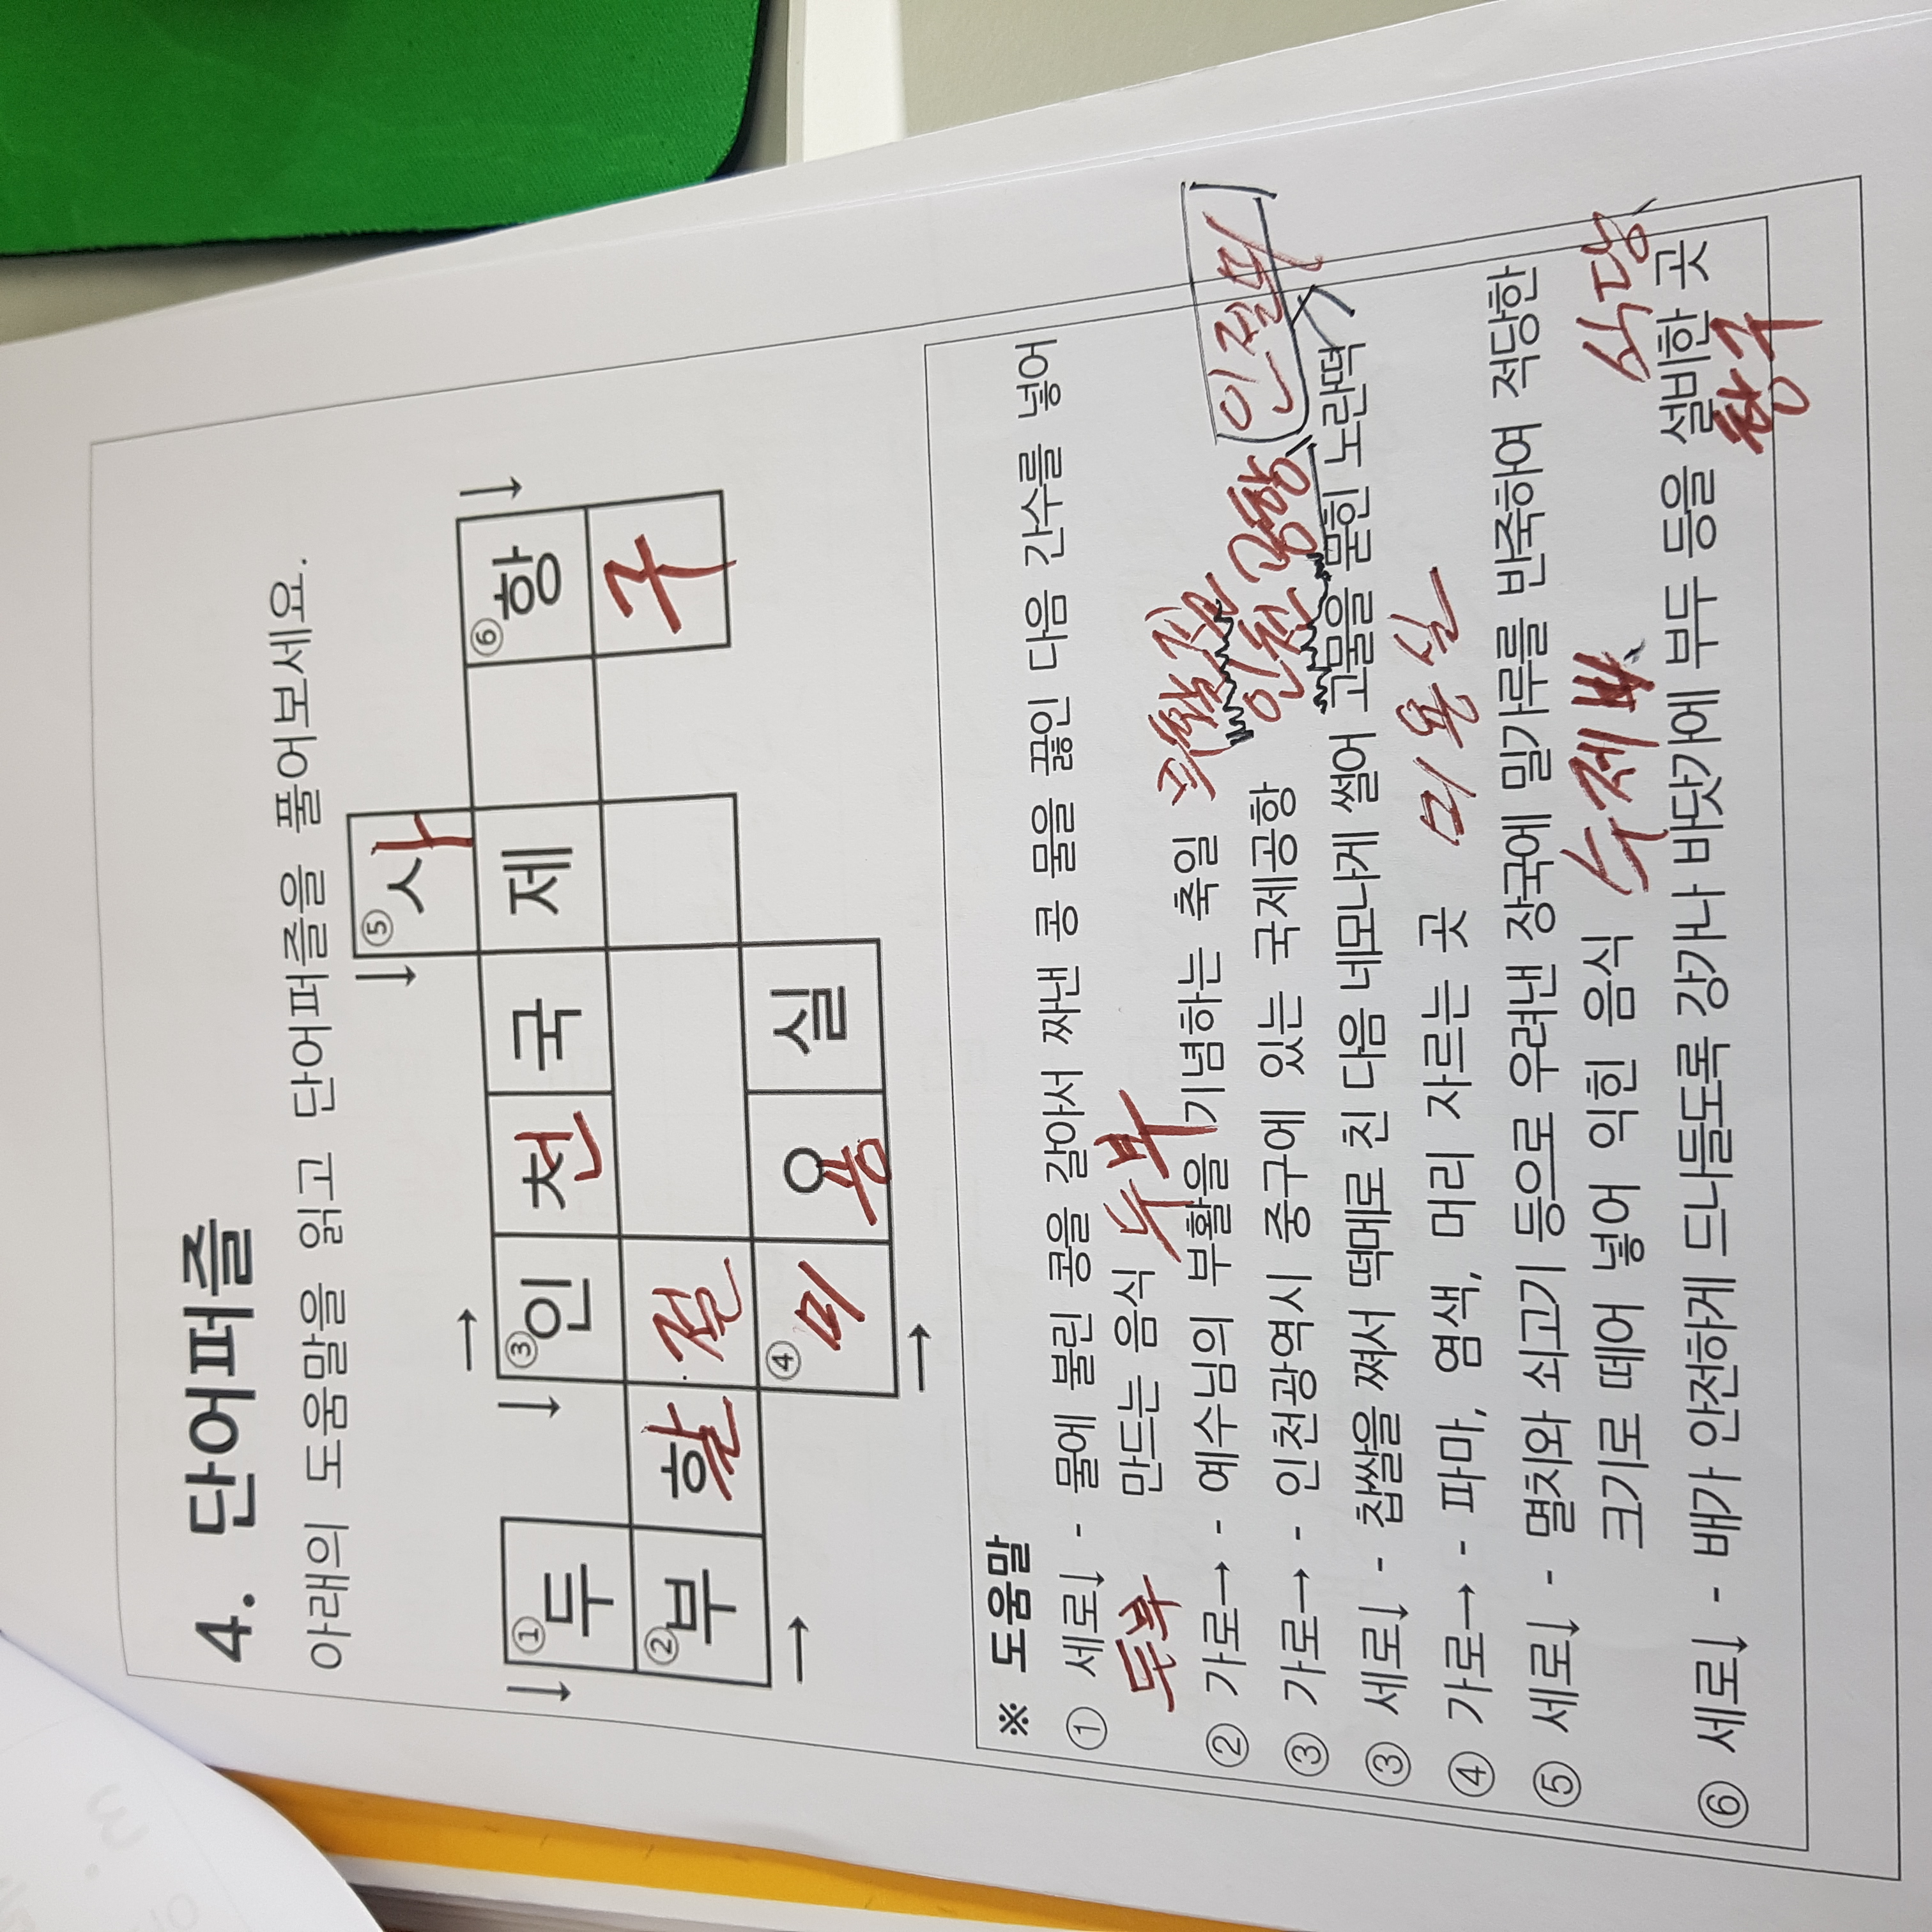 4. 단어퍼즐
아래의 도움말을 읽고 단어퍼즐을 풀어보세요.
↓ ⑤ 사
→ ⑥ ↓
↓ ① 두 ↓ ③ 인 천 국 제 항
② 부 활 절 구
→ ④ 미 용 실
→
※ 도움말
① 세로↓ - 물에 불린 콩을 갈아서 짜낸 콩 물을 끓인 다음 간수를 넣어
두부 만드는 음식 두부
② 가로→ - 예수님의 부활을 기념하는 축일
③ 가로→ - 인천광역시 중구에 있는 국제공항 인천
인절미
③ 세로↓ - 찹쌀을 쪄서 떡메로 친 다음 네모나게 썰어 고물을 묻힌 노란떡
④ 가로→ - 파마, 염색, 머리 자르는 곳 미용실
⑤ 세로↓ - 멸치와 쇠고기 등으로 우려낸 장국에 밀가루를 반죽하여 적당한
크기로 떼어 넣어 익힌 음식 수제비 식당
⑥ 세로↓ - 배가 안전하게 드나들도록 강가나 바닷가에 부두 등을 설비한 곳
항구